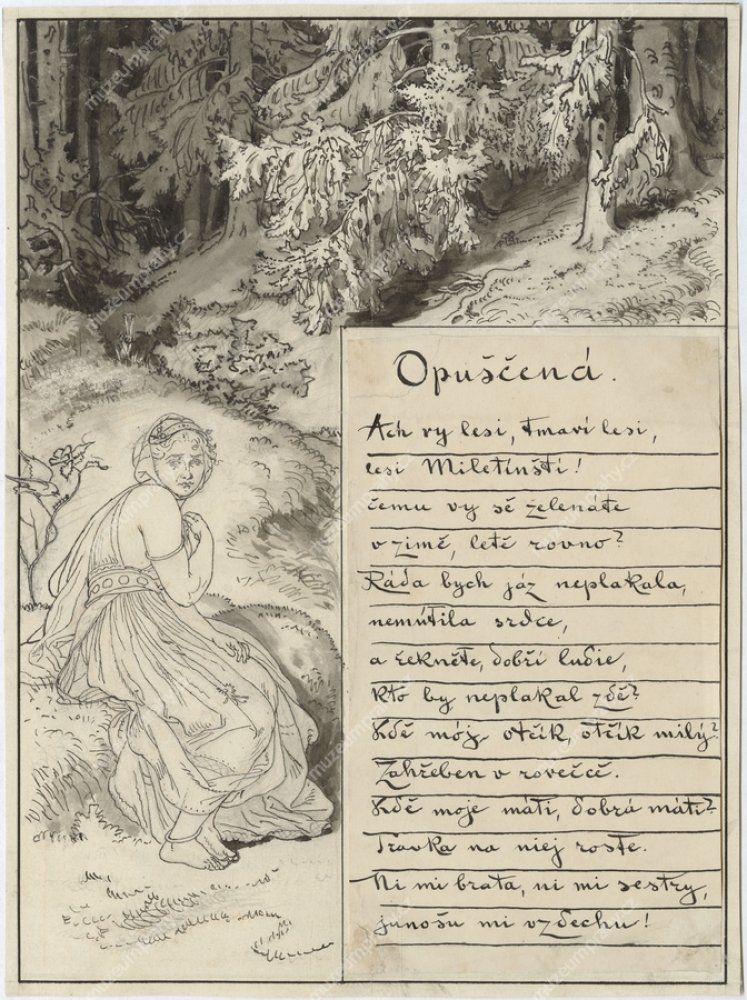 Opuščená.
Ach vy lesi, tmaví lesi,
lesi Miletínští!
čemu vy sě zelenáte
v zimě, letě rovno?
Ráda bych jáz neplakala,
nemútila srdce,
a řekněte, dobří ludie,
kto by neplakal zdě?
Kdě mój otčík, otčík milý?
Zahřeben v rovečcě.
Kdě moje máti, dobrá máti?
Travka na niej roste.
Ni mi brata, ni mi sestry,
junošu mi vzdechu!
muzeumprahy.cz